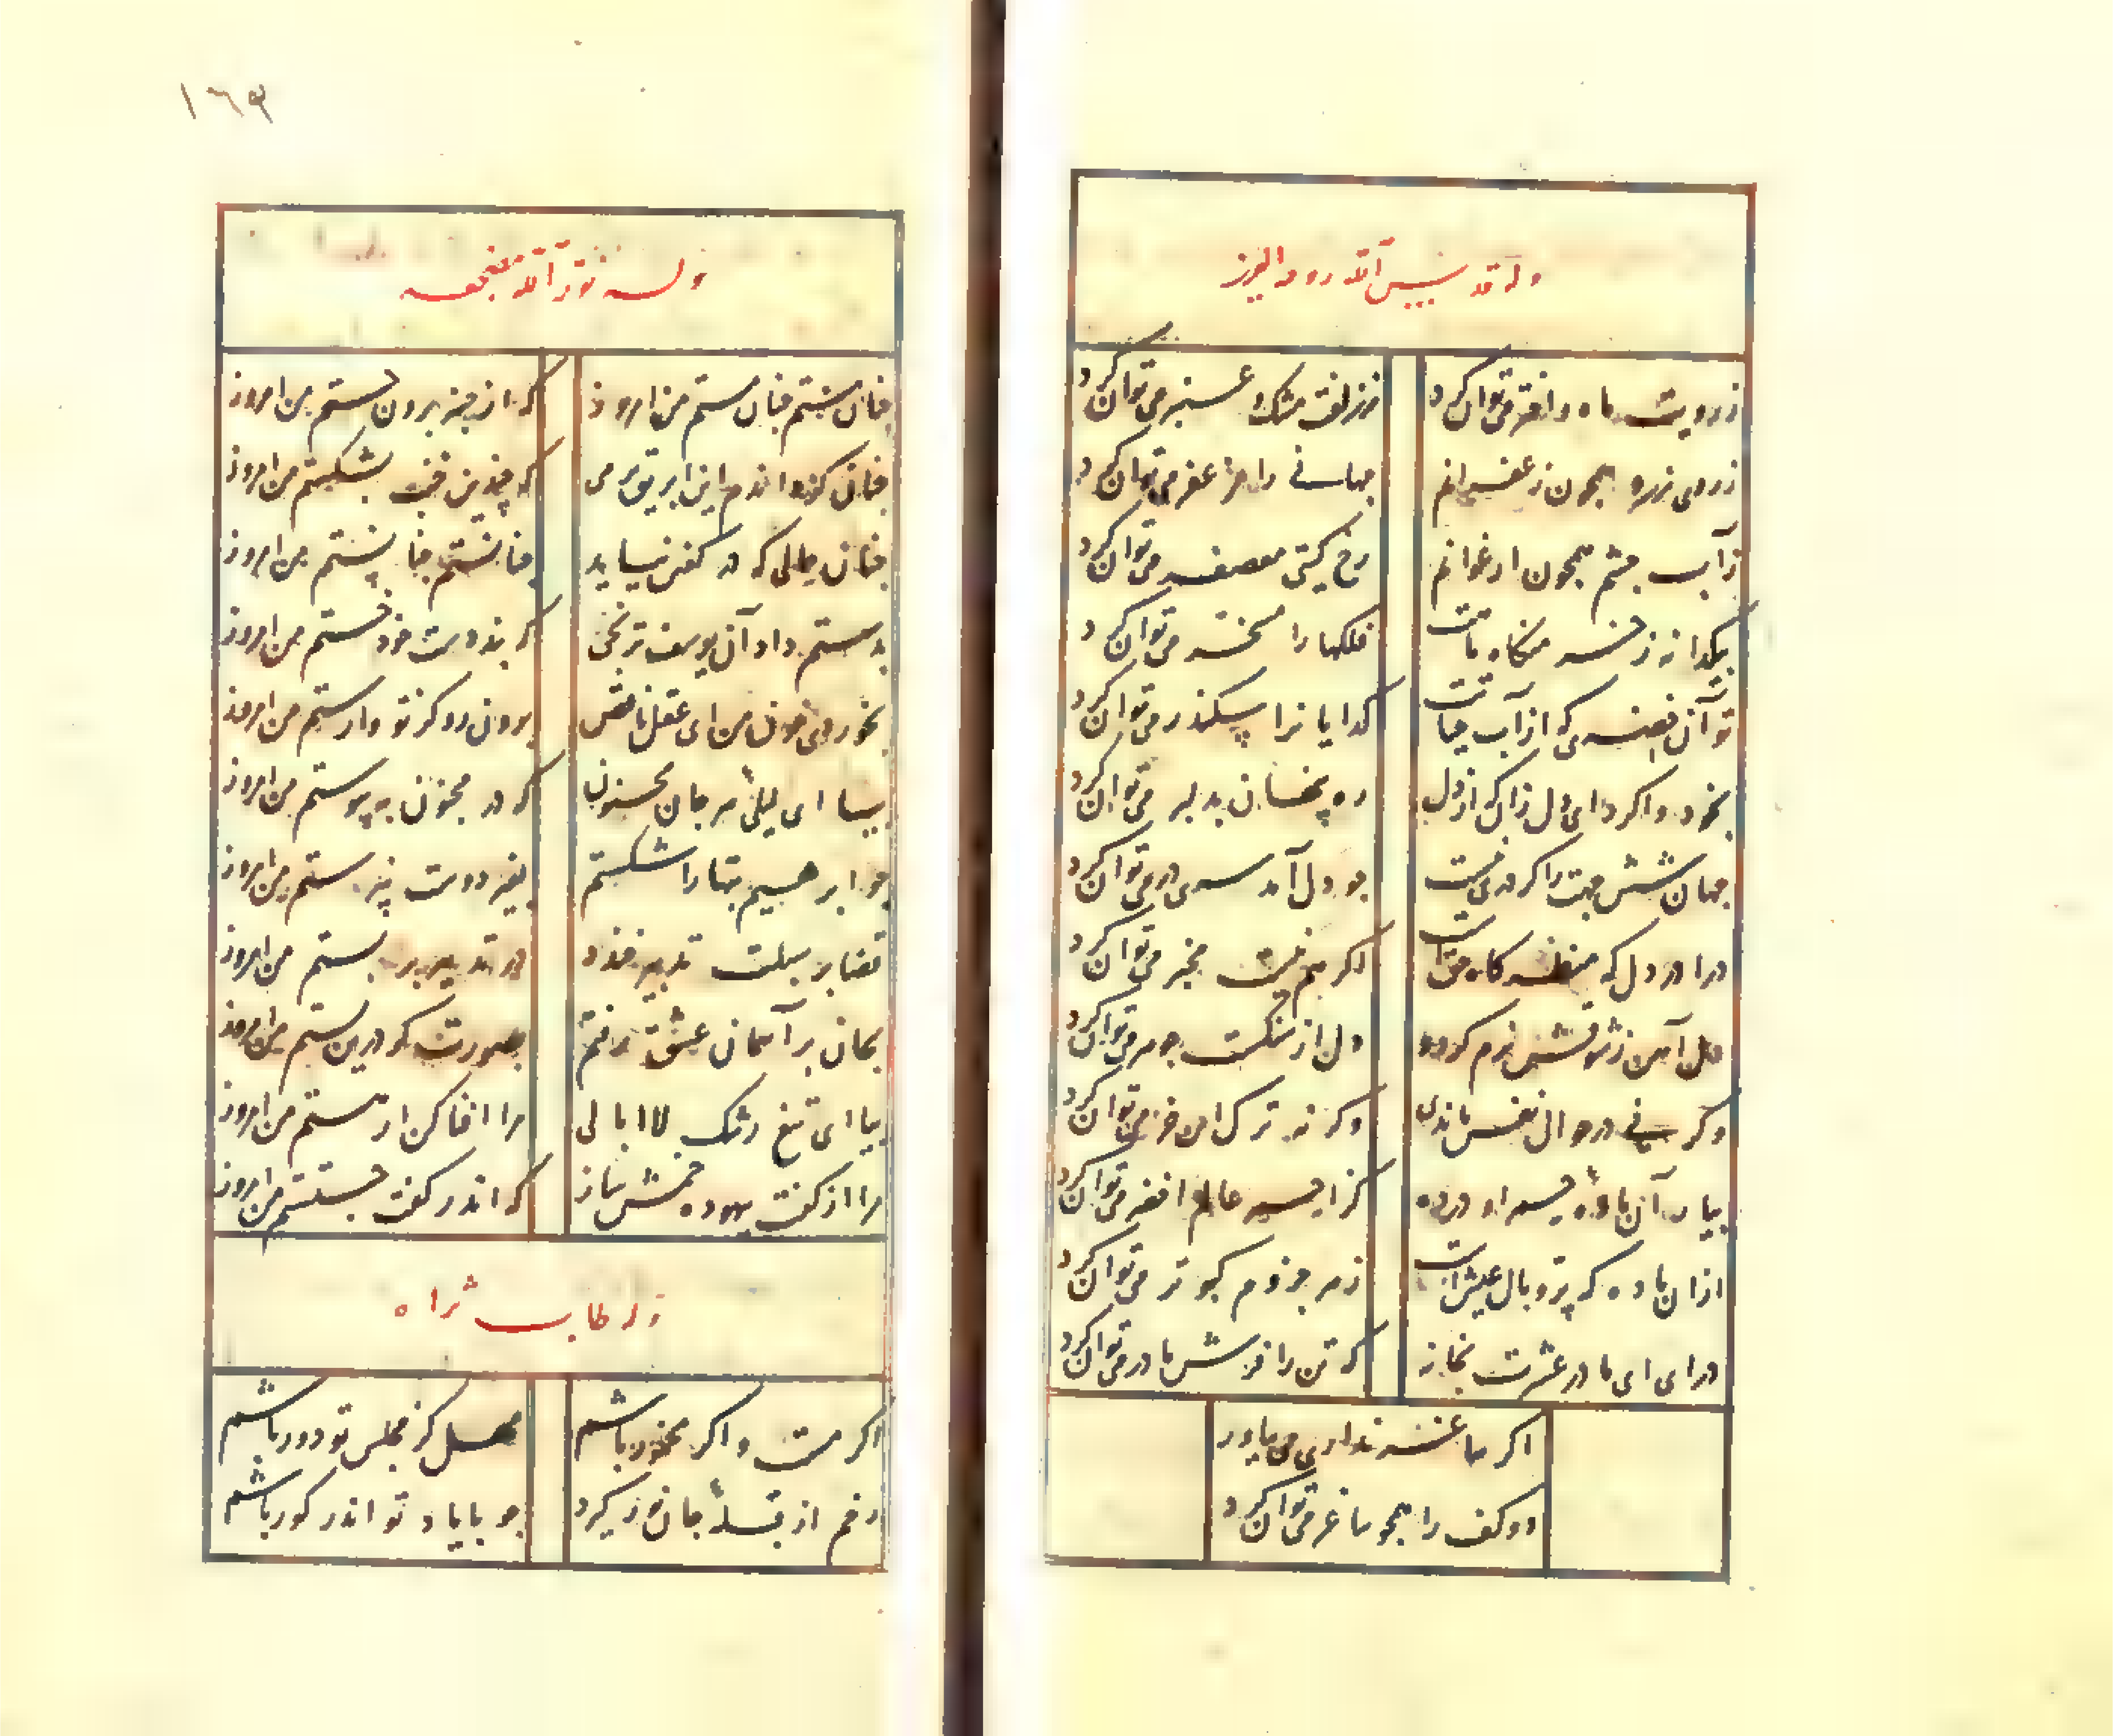 وله قدس الله روحه العزیز
ز رویت ماه و اختر می توان کرد
ز زلفت مشک و عنبر می توان کرد
ز روی زرد همچون زعفرانم
جهانی را مزعفر می توان کرد
ز آب چشم همچون ارغوانم
رخ گیتی معصفر می توان کرد
بیکدانه ز خرمنگاه ماهت
فلکها را مسخر می توان کرد
تو آن خضری که از آب حیاتت
گدایانرا سکندر می توان کرد
بخود واگرد ای دل زانک از دل
ره پنهان بدلبر می توان کرد
جهان شش جهت را گر دری نیست
چو دل آمد سوی در می توان کرد
درا در دل که منظرگاه حق است
اگر هم نیست منظر می توان کرد
دل از سنگت جوهر می توان کرد
دل آهن ز شوقش نرم گردد
بیار آن باده حمرا و درده
کز احمر عالم اخضر می توان کرد
ازان باده که پر و بال عیش است
ز هر جزوم کبوتر می توان کرد
درای ای مادر عشرت بخانه
که تن را فرش مادر می توان کرد
اگر ساغر نداری می بیاور
دو کف را همچو ساغر می توان کرد
١٦٩
وله نور الله مضجعه
چنان مستم چنان مستم من امروز
که از چنبر برون جستم من امروز
که چندین خنب بشکستم من امروز
چنان حالی که در گفتن نیاید
چنانستم چنانستم من امروز
بدستم داد آن یوسف ترنجی
که هر دو دست خود خستم من امروز
نخوردی خون من ای عقل ناقص
برون رو کز تو وارستم من امروز
بیا ای لیلی هر جان محزون
که در مجنون بپیوستم من امروز
چو ابراهیم بتها را شکستم
بغیر دوست نپرستم من امروز
قضا بر سبلت تدبیر خندد
در تدبیر بربستم من امروز
بجان بر آسمان عشق رفتم
بصورت گر درین پستم من امروز
بیا ای تیغ رشک لاابالی
مرا افنا کن ار هستم من امروز
مرا از گفت بیهوده خمش ساز
که اندر گفت جستستم من امروز
وله طاب ثراه
اگر مست و اگر مخمور باشم
مهل کز مجلس تو دور باشم
رخم از قبله جان نور گیرد
چو با یاد تو اندر گور باشم